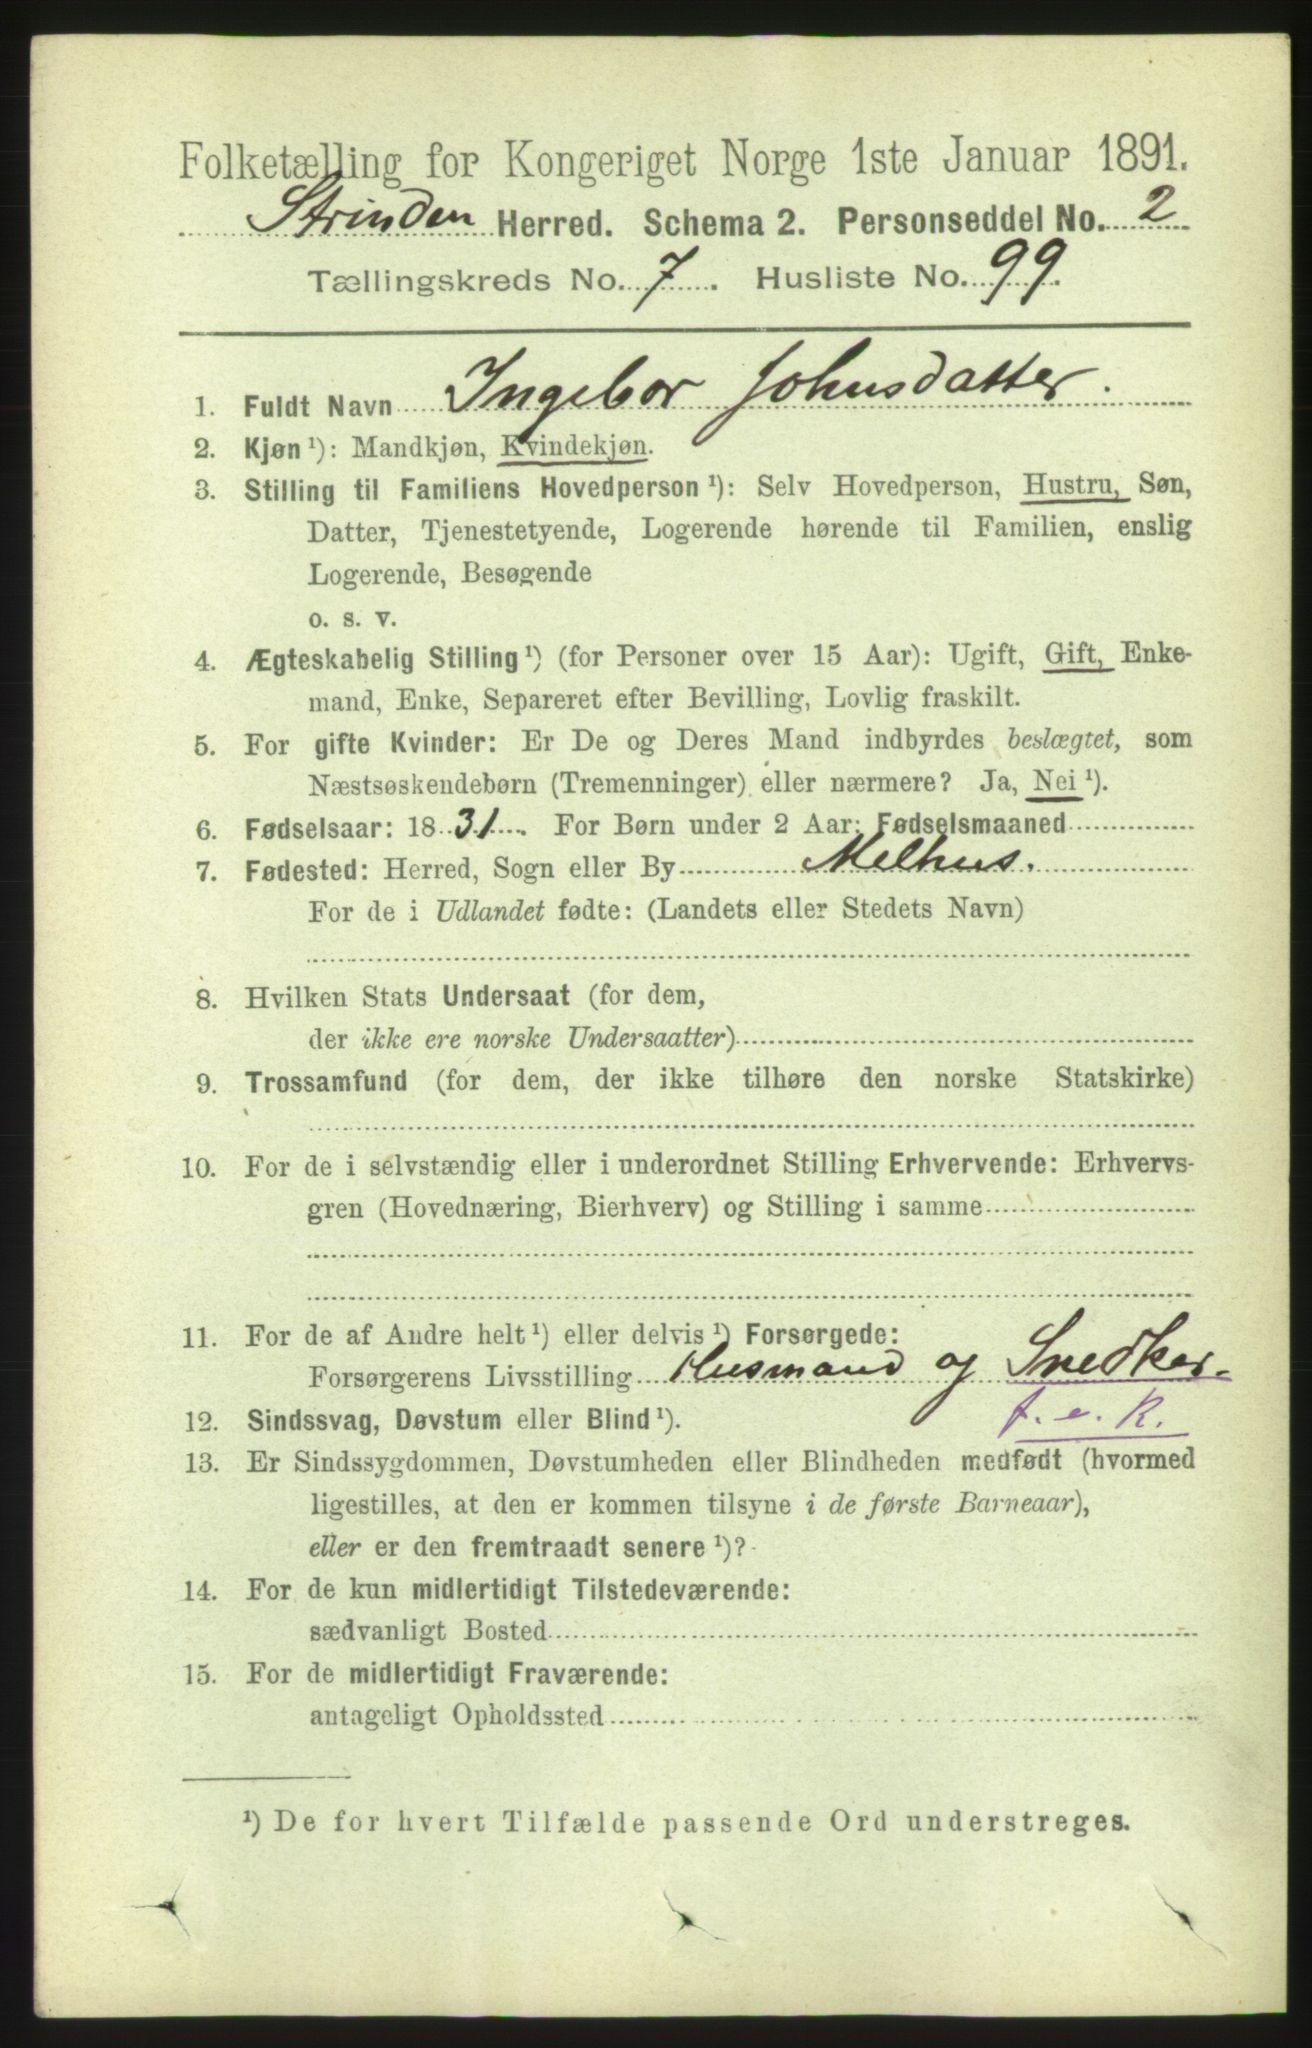 Folketælling for Kongeriget Norge 1ste Januar 1891.
Strinden Herred. Schema 2. Personseddel No. 2
Tællingskreds No. 7. Husliste No. 99.
1. Fuldt Navn Ingebor Johnsdatter.
2. Kjøn ¹): Mandkjøn, Kvindekjøn.
3. Stilling til Familiens Hovedperson ¹): Selv Hovedperson, Hustru, Søn,
Datter, Tjenestetyende, Logerende hørende til Familien, enslig
Logerende, Besøgende
o. s. v.
4. Ægteskabelig Stilling ¹) (for Personer over 15 Aar): Ugift, Gift, Enke-
mand, Enke, Separeret efter Bevilling, Lovlig fraskilt.
5. For gifte Kvinder: Er De og Deres Mand indbyrdes beslægtet, som
Næstsøskendebørn (Tremenninger) eller nærmere? Ja, Nei ¹).
6. Fødselsaar: 1831. For Børn under 2 Aar: Fødselsmaaned
7. Fødested: Herred, Sogn eller By Melhus.
For de i Udlandet fødte: (Landets eller Stedets Navn)
8. Hvilken Stats Undersaat (for dem,
der ikke ere norske Undersaatter)
9. Trossamfund (for dem, der ikke tilhøre den norske Statskirke)
10. For de i selvstændig eller i underordnet Stilling Erhvervende: Erhvervs-
gren (Hovednæring, Bierhverv) og Stilling i samme
11. For de af Andre helt ¹) eller delvis ¹) Forsørgede:
Forsørgerens Livsstilling Husmand og Snedker.
12. Sindssvag, Døvstum eller Blind ¹). f. e. k.
13. Er Sindssygdommen, Døvstumheden eller Blindheden medfødt (hvormed
ligestilles, at den er kommen tilsyne i de første Barneaar),
eller er den fremtraadt senere ¹)?
14. For de kun midlertidigt Tilstedeværende:
sædvanligt Bosted
15. For de midlertidigt Fraværende:
antageligt Opholdssted
¹) De for hvert Tilfælde passende Ord understreges.